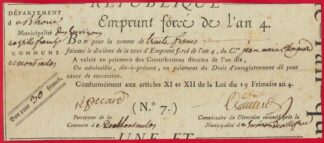 RÉPUBLIQUE
DÉPARTEMENT
Emprunt forcé de l'an 4.
Municipalité des
COMMUNE
Bon pour la somme de trente francs
faisant le dixième de la taxe d'Emprunt forcé de l'an 4, du C.en jean marie
A valoir en paiement des Contributions directes de l'an dix,
Ou admissible, dès-à-présent, en paiement du Droit d'enregistrement dû pour
cause de succession.
Conformément aux articles XI et XII de la Loi du 19 Frimaire an 4.
Bon pour 30 francs.
(N.° 7.)
Percepteur de la
Commune d
Commissaire du Directoire exécutif près la
Municipalité d
UNE ET